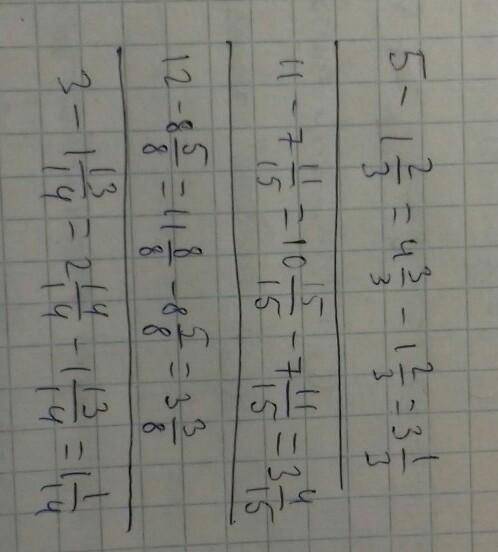 5 - 1 2/3 = 4 3/3 - 1 2/3 = 3 1/3
11 - 7 11/15 = 10 15/15 - 7 11/15 = 3 4/15
12 - 8 5/8 = 11 8/8 - 8 5/8 = 3 3/8
3 - 1 13/14 = 2 14/14 - 1 13/14 = 1 1/14